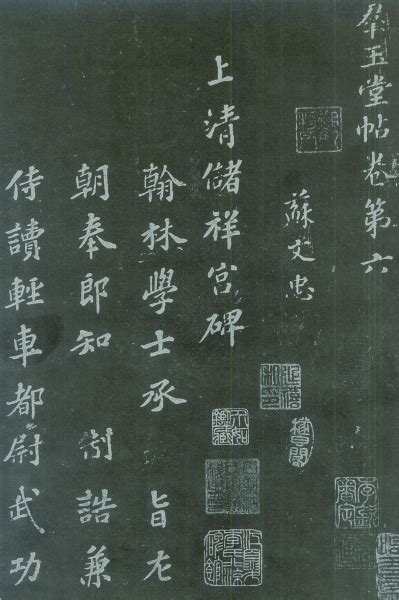 羣玉堂帖卷第六
蘇文忠
上清儲祥宮碑
翰林學士承 旨左
朝奉郎知 制誥兼
侍讀輕車都尉武功